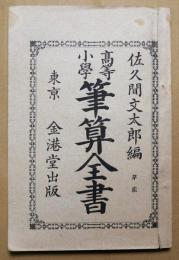 佐久間文太郎編
高等
小學
筆算全書
東京　金港堂出版